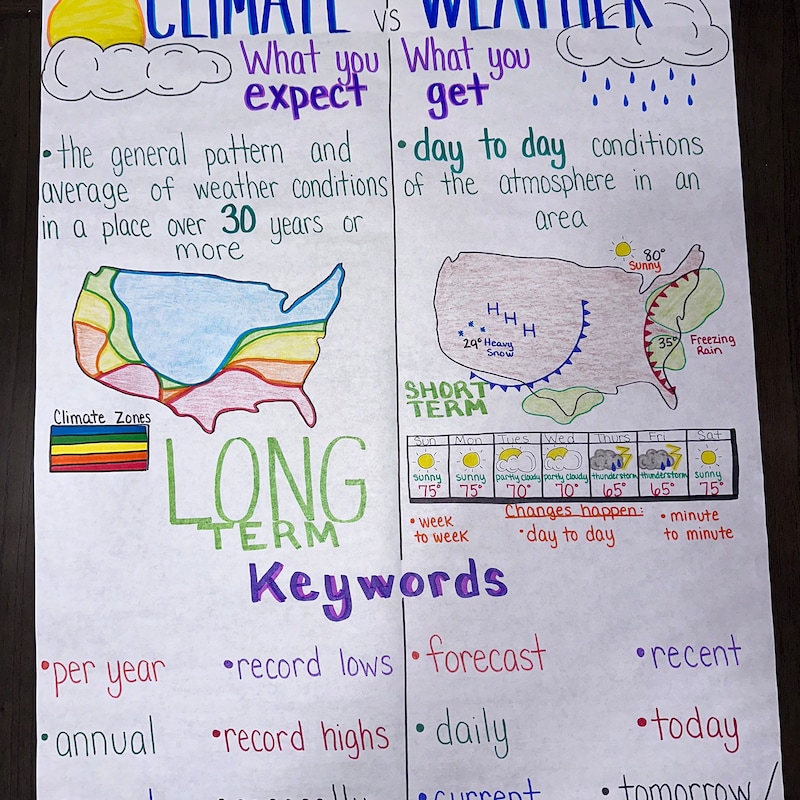 CLIMATE vs WEATHER
What you
expect
• the general pattern and
average of weather conditions
in a place over 30 years or
more
Climate Zones
LONG
TERM
What you
get
• day to day conditions
of the atmosphere in an
area
80°
Sunny
H H H
29° Heavy
Snow
35° Freezing
Rain
SHORT
TERM
Sun Mon Tues Wed Thurs Fri Sat
sunny sunny partly cloudy partly cloudy thunderstorm thunderstorm sunny
75° 75° 70° 70° 65° 65° 75°
Changes happen:
• week
to week
• day to day
• minute
to minute
Keywords
• per year • record lows
• annual • record highs
• forecast • recent
• daily • today
• current • tomorrow /